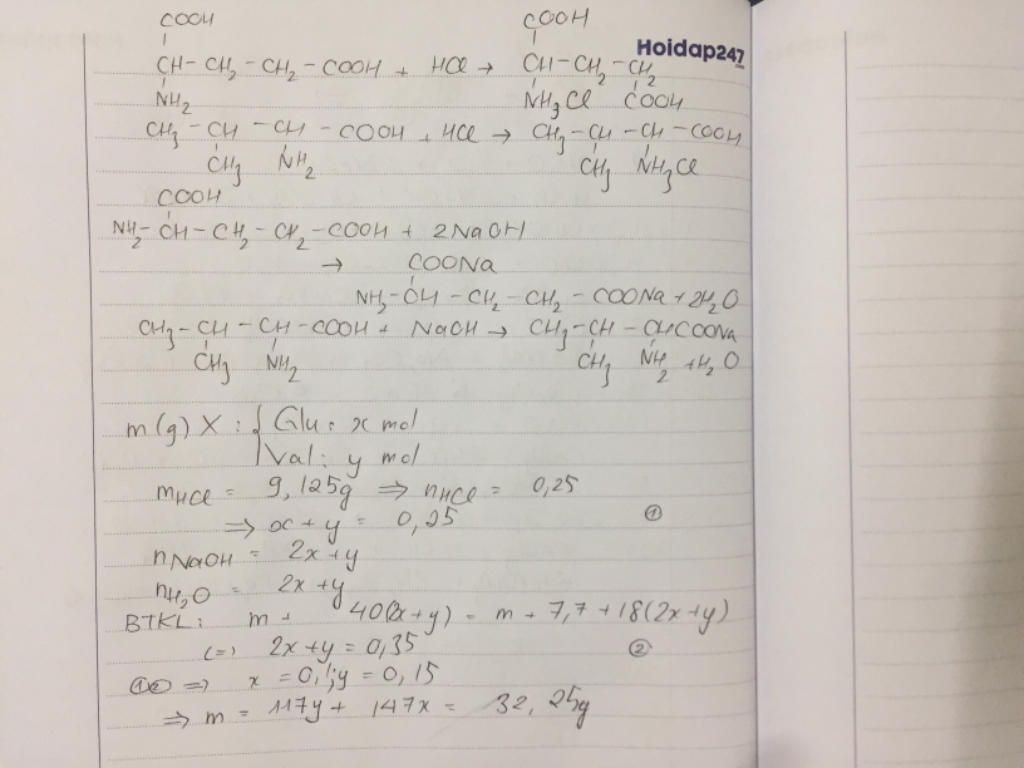 COOH COOH
Hoidap247
CH-CH2-CH2-COOH + HCl → CH-CH2-CH2
NH2 NH3Cl COOH
CH3-CH-CH-COOH + HCl → CH3-CH-CH-COOH
CH3 NH2 CH3 NH3Cl
COOH
NH2-CH-CH2-CH2-COOH + 2NaOH
→ COONa
NH2-CH-CH2-CH2-COONa + 2H2O
CH3-CH-CH-COOH + NaOH → CH3-CH-CHCOONa
CH3 NH2 CH3 NH2 + H2O
m(g) X : { Glu : x mol
Val : y mol
mHCl = 9,125g ⇒ nHCl = 0,25
⇒ x + y = 0,25 ①
nNaOH = 2x + y
nH2O = 2x + y
BTKL: m + 40(2x+y) = m + 7,7 + 18(2x+y)
(=) 2x + y = 0,35 ②
①② ⇒ x = 0,1; y = 0,15
⇒ m = 117y + 147x = 32,25g